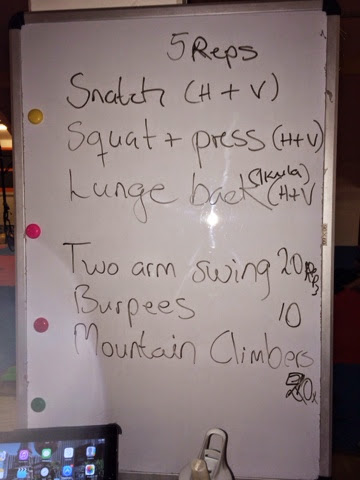 5 Reps
Snatch (H + V)
Squat + press (H+V)
Lunge back (H+V
Two arm swing 20 Reps
Burpees 10
Mountain Climbers
20x